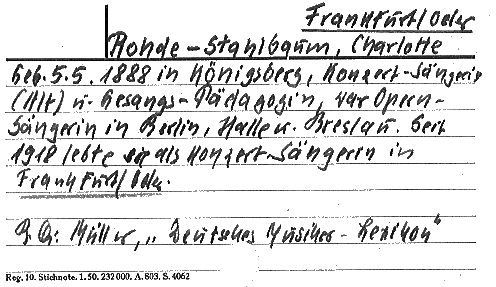 Frankfurt/Oder
Rohde-Stahlbaum, Charlotte
Geb. 5.5.1888 in Königsberg, Konzert-Sängerin
(Alt) u. Gesangs-Pädagogin, war Opern-
Sängerin in Berlin, Halle u. Breslau. Seit
1918 lebte sie als Konzert-Sängerin in
Frankfurt/Oder.
Müller, „Deutsches Musiker-Lexikon"
Reg. 10. Stichnote. 1. 50. 232000. A. 803. S. 4062